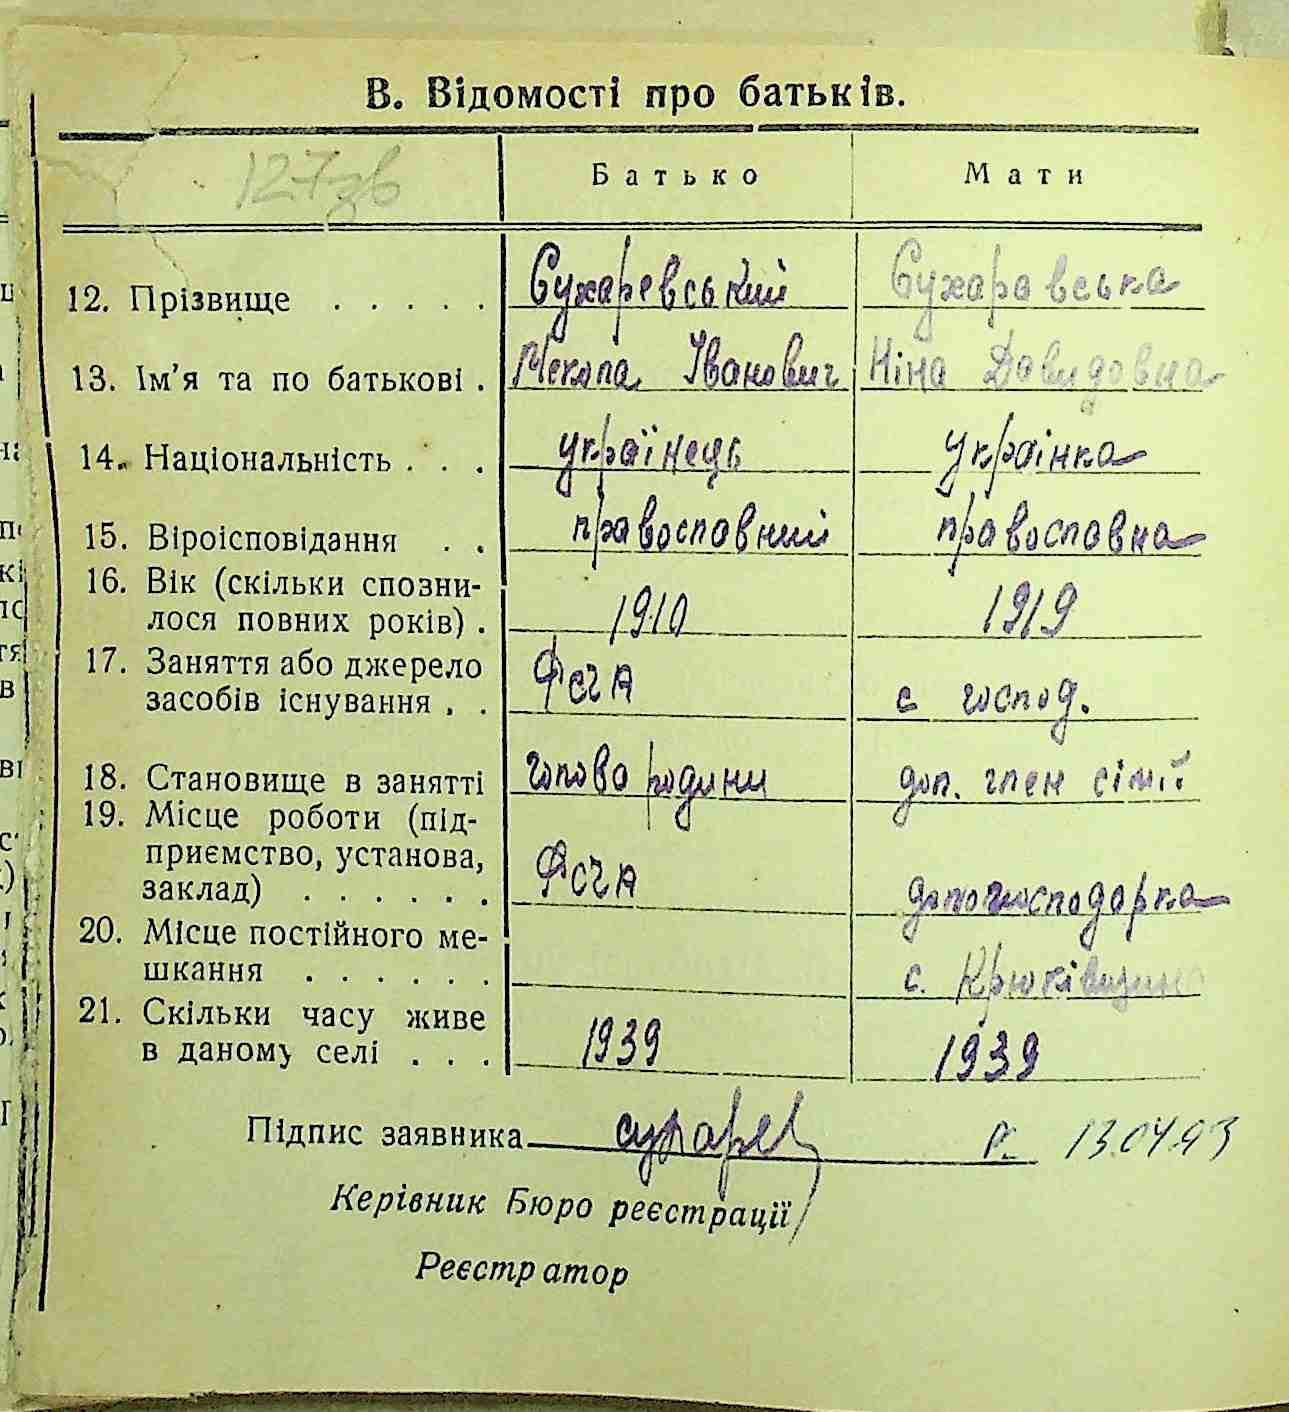 В. Відомості про батьків.
127зв
Батько Мати
12. Прізвище . . . . . Сухаревський Сухаравська
13. Ім'я та по батькові . Микола Іванович Ніна Давидовна
14. Національність . . . українець українка
15. Віроісповідання . . православний православна
16. Вік (скільки спозни-
лося повних років) . 1910 1919
17. Заняття або джерело
засобів існування . . ФСЧА с господ.
18. Становище в занятті голова родини доп. член сімії
19. Місце роботи (під-
приємство, установа,
заклад) . . . . . . ФСЧА домогосподарка
20. Місце постійного ме-
шкання . . . . . . с. Крюківщина
21. Скільки часу живе
в даному селі . . . 1939 1939
Підпис заявника сухарев 13.04.93
Керівник Бюро реєстрації
Реєстратор